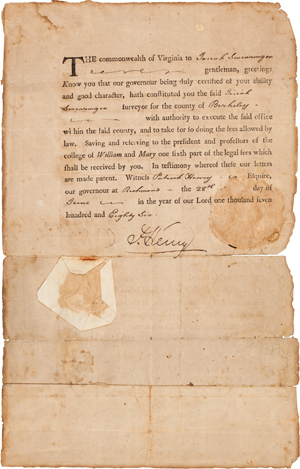 THE commonwealth of Virginia to Josiah Swearingen
gentleman, greeting:
KNOW you that our governour being duly certified of your ability
and good character, hath constituted you the said Josiah
Swearingen surveyor for the county of Berkeley
with authority to execute the said office
within the said county, and to take for so doing the fees allowed by
law. Saving and reserving to the president and professors of the
college of William and Mary one sixth part of the legal fees which
shall be received by you. In testimony whereof these our letters
are made patent. Witness Patrick Henry Esquire,
our governour at Richmond the 28th day of
June in the year of our Lord one thousand seven
hundred and Eighty Six.
P. Henry